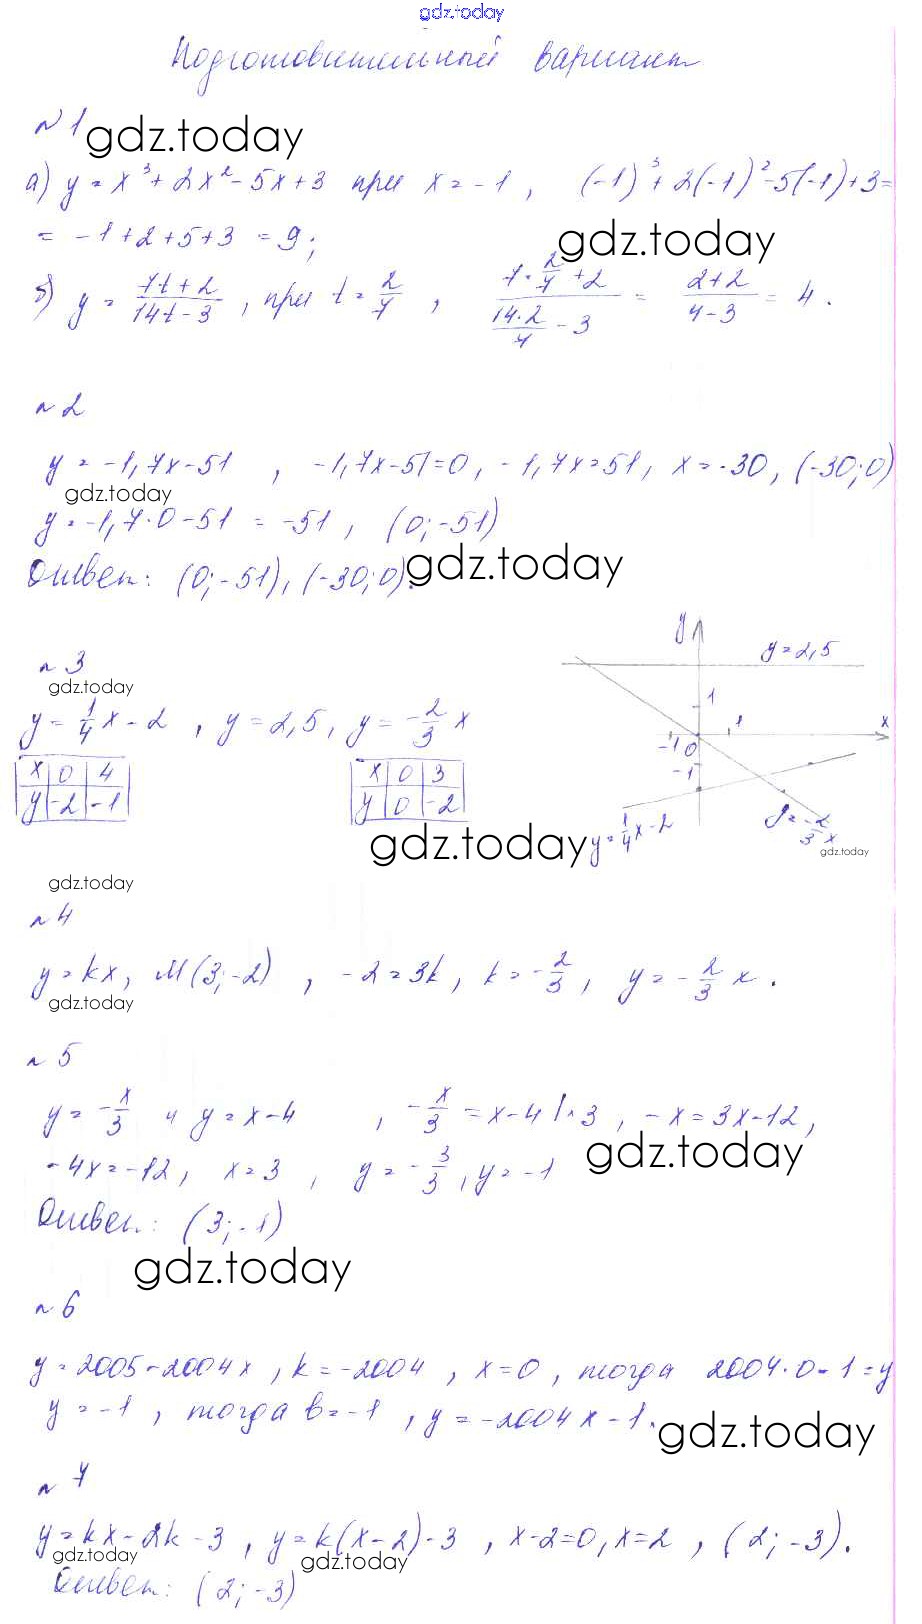 gdz.today
Подготовительный вариант
№1 gdz.today
а) y = x³ + 2x² - 5x + 3 при x = -1 , (-1)³ + 2(-1)² - 5(-1) + 3 =
= -1 + 2 + 5 + 3 = 9; gdz.today
б) y = (7t + 2)/(14t - 3) , при t = 2/7 , (7·2/7 + 2)/(14·2/7 - 3) = (2 + 2)/(4 - 3) = 4 .
№2
y = -1,7x - 51 , -1,7x - 51 = 0 , -1,7x = 51 , x = -30 , (-30; 0)
gdz.today
y = -1,7·0 - 51 = -51 , (0; -51)
Ответ: (0; -51), (-30; 0). gdz.today
№3
gdz.today
y = 1/4 x - 2 , y = 2,5 , y = -2/3 x
x 0 4
y -2 -1
x 0 3
y 0 -2
y
y = 2,5
1
1
x
-1 0
-1
y = 1/4 x - 2
y = -2/3 x
gdz.today
gdz.today
gdz.today
№4
y = kx, M(3; -2) , -2 = 3k , k = -2/3 , y = -2/3 x .
gdz.today
№5
y = -x/3 и y = x - 4 , -x/3 = x - 4 |·3 , -x = 3x - 12 ,
-4x = -12 , x = 3 , y = -3/3 , y = -1 gdz.today
Ответ: (3; -1)
gdz.today
№6
y = 2005 - 2004x , k = -2004 , x = 0 , тогда 2004·0 - 1 = y
y = -1 , тогда b = -1 , y = -2004x - 1. gdz.today
№7
y = kx - 2k - 3 , y = k(x - 2) - 3 , x - 2 = 0 , x = 2 , (2; -3).
gdz.today gdz.today
Ответ: (2; -3)